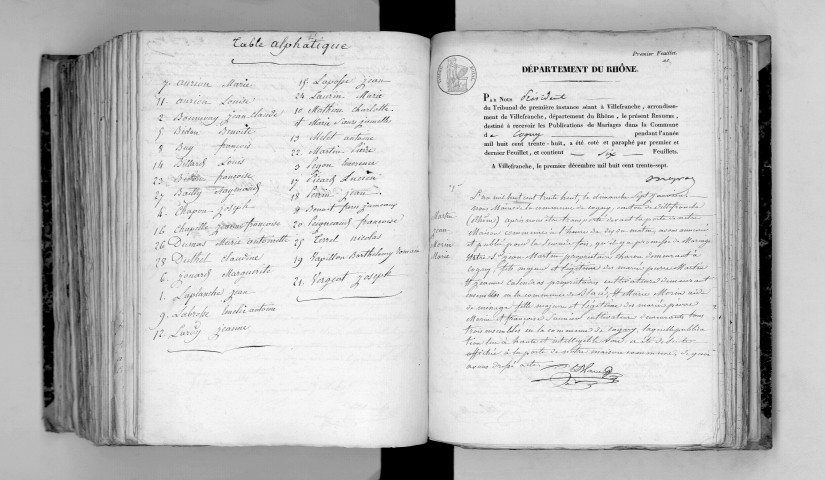 Table alphatique
7. aurion Marie
11. aurion Louise
2 Bonnevay jean claude
5. Bedin Benoite
8 Buy françois
14 Billard Louis
23 françoise
27 Bailly Raymond
4. Chapon joseph
16 Chapelle jeanne françoise
26 Dumas Marie antoinette
28 Duthel claudine
6. jouard Marguerite
1. Laplanche jean
9. Labroße antoine
12. Lardy jeanne
15 Laposse jean
24 Laurin Marie
10 Mathieu Charlotte
Marie
13 Melet antoine
22. Martin Pierre
3
17 Picard Lucien
18 Perrin jean
Benoit
20 françoise
25 Terrel nicolas
19 Papillon Barthelemy
21. Vergeat joseph
Premier Feuillet.
DÉPARTEMENT DU RHÔNE.
PAR NOUS Président
du Tribunal de première instance séant à Villefranche, arrondisse-
ment de Villefranche, département du Rhône, le présent REGISTRE,
destiné à recevoir les Publications de Mariages dans la Commune
d e Cogny pendant l'année
mil huit cent trente-huit, a été coté et paraphé par premier et
dernier Feuillet, et contient Six Feuillets.
A Villefranche, le premier décembre mil huit cent trente-sept.
Martin
jean
Morin
Marie
L'an mil huit cent trente huit, le dimanche Sept janvier
nous Maire de la commune de cogny, canton de villefranche
(Rhône) après nous être transporté devant la porte de notre
Maison commune à l'heure de dix du matin, avons annoncé
et publié pour la fois, qu'il y a promesse de Mariage
Entre Sr jean Martin propriétaire demeurant à
cogny, fils majeur et légitime des mariés pierre Martin
et jeanne propriétaires cultivateurs demeurant
ensembles en la commune de Blacé, et Marie Morin aide
de ménage fille majeure et légitime des mariés pierre
Morin et françoise cultivateurs demeurants tous
trois ensembles en la commune de cogny, laquelle publica
tion lue à haute et intelligible voix a été de suite
affichée à la porte de notre maison commune, de quoi
avons dressé acte